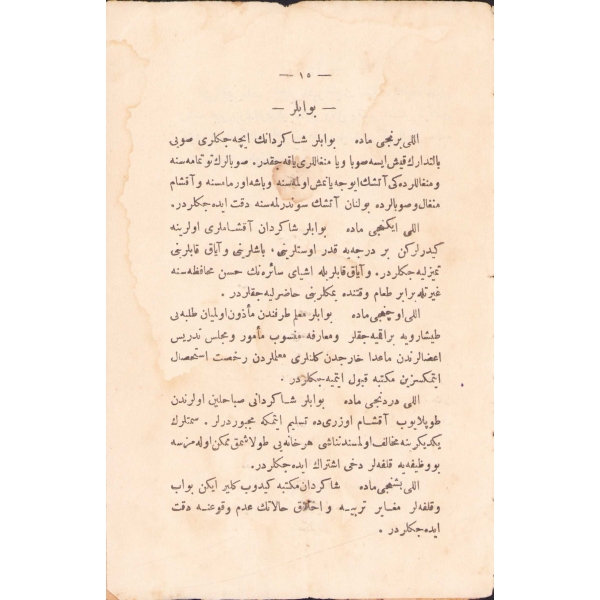 — ١٥ —
— بوابلر —
اللی برنجی ماده بوابلر شاكردانك ایچه جكلری صویی
بالتدارك قیش ایسه صوبا ویا منغاللری یاقه جقدر. صوبالرك توتمامه سنه
و منغاللرده كی آتشك ایوجه یانمش اولمه سنه وباشه اورمامسنه و آقشام
منغال و صوبالرده بولنان آتشك سوندرلمه سنه دقت ایده جكلردر.
اللی ایكنجی ماده بوابلر شاكردان آقشاملری اولرینه
كیدرلركن بر درجه یه قدر اوستلرینی، باشلرینی و آیاق قابلرینی
تمیزلیه جكلردر. و آیاق قابلریله اشیای سائره نك حسن محافظه سنه
غیرتله برابر طعام وقتنده یمكلرینی حاضرلیه جقلردر.
اللی اوچنجی ماده بوابلر معلم طرفندن مأذون اولمیان طلبه یی
طیشارویه براقمیه جقلر ومعارفه منسوب مأمور و مجلس تدریس
اعضالرندن ماعدا خارجدن كلنلری معلملردن رخصت استحصال
ایتمكسزین مكتبه قبول ایتمیه جكلردر.
اللی دردنجی ماده بوابلر شاكردانی صباحلین اولرندن
طوپلایوب آقشام اوزری ده تسلیم ایتمكه مجبوردرلر. سمتلرك
یكدیكرینه مخالف اولمسندن ناشی هرخانه یی طولاشمق ممكن اوله مزسه
بووظیفه یه قلفه لر دخی اشتراك ایده جكلردر.
اللی بشنجی ماده شاكردان مكتبه كیدوب كلیر ایكن بواب
وقلفه لر مغایر تربیه و اخلاق حالاتك عدم وقوعنه دقت
ایده جكلردر.